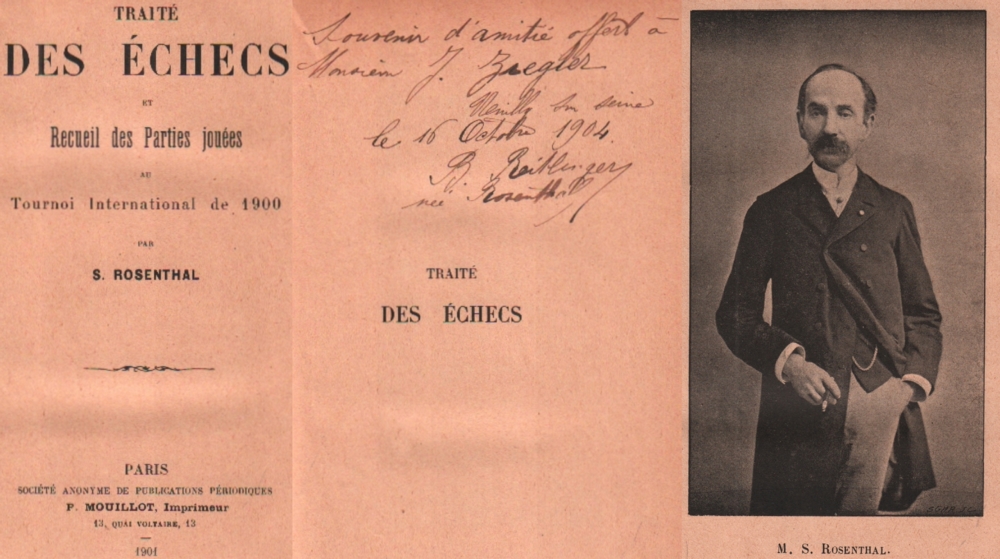 TRAITÉ
DES ÉCHECS
ET
Recueil des Parties jouées
AU
Tournoi International de 1900
PAR
S. ROSENTHAL
PARIS
SOCIÉTÉ ANONYME DE PUBLICATIONS PÉRIODIQUES
P. MOUILLOT, Imprimeur
13, QUAI VOLTAIRE, 13
1901
Souvenir d'amitié offert à
Monsieur J. Ziegler
Neuilly sur seine
le 16 Octobre 1904.
B. Reitlinger
née Rosenthal
TRAITÉ
DES ÉCHECS
M. S. ROSENTHAL.